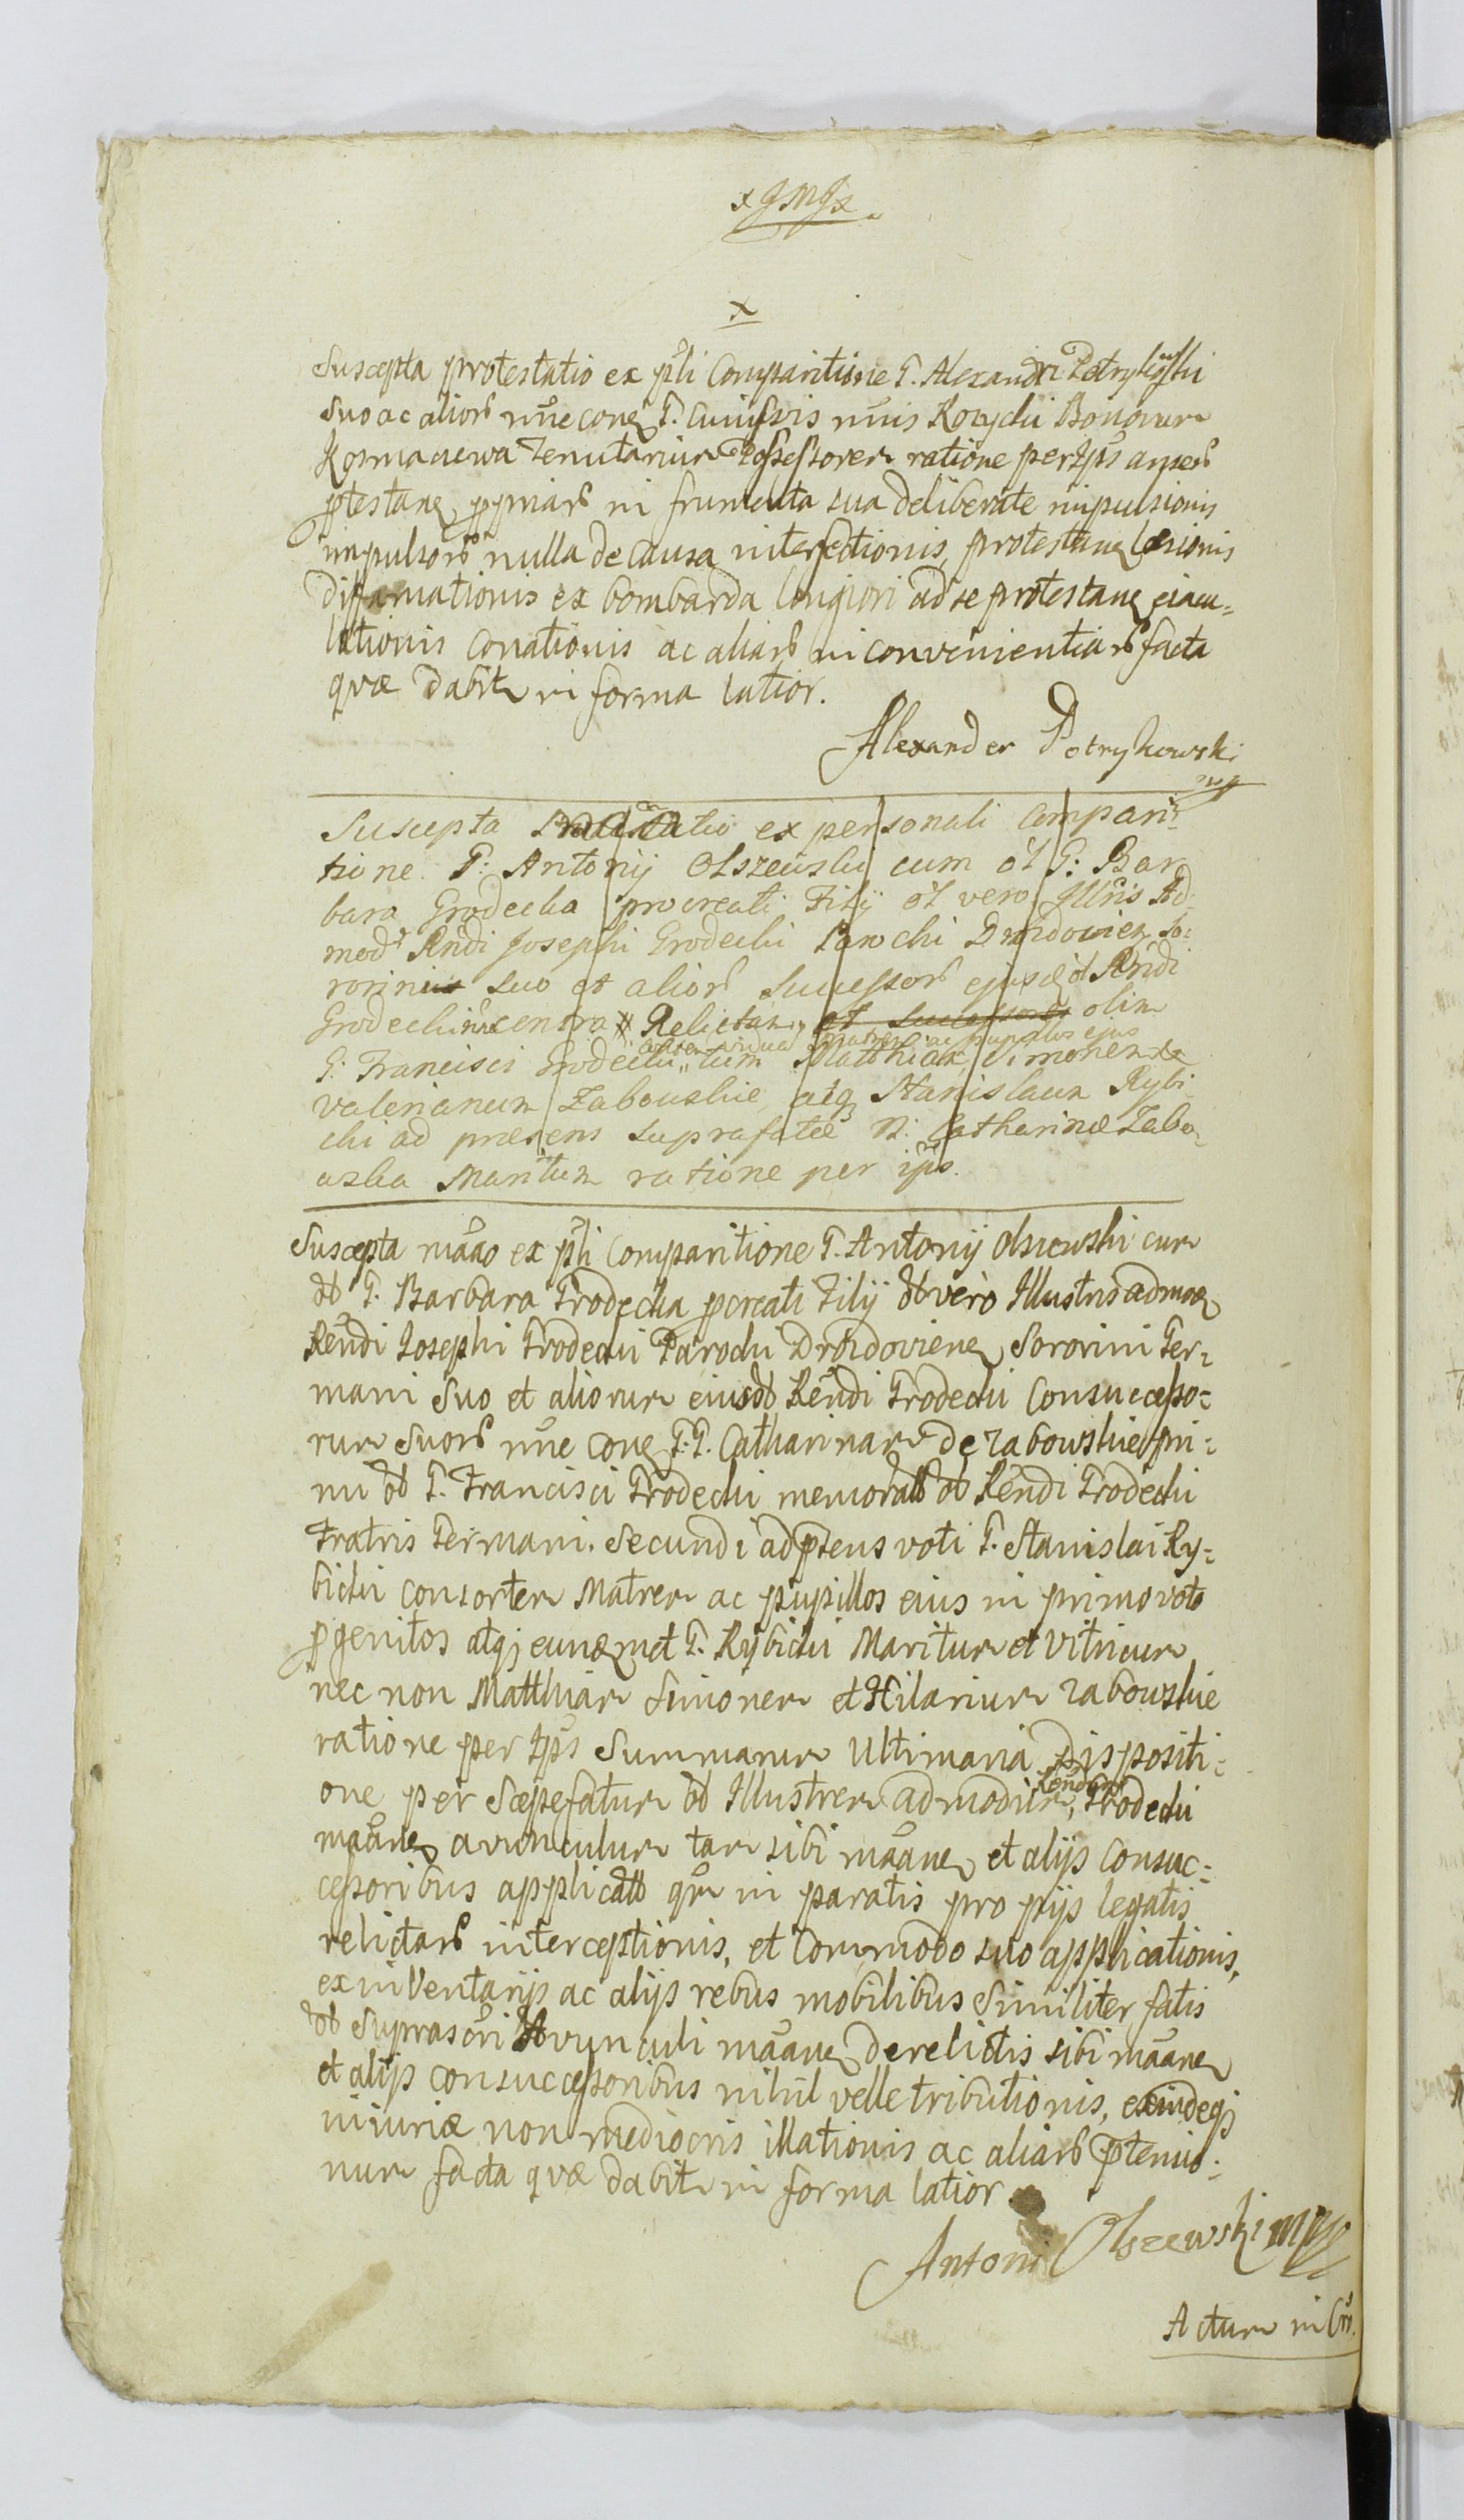 x JMJ x
x
Suscepta protestatio ex pli Comparitione G. Alexandri Potrykowski
Suo ac alior nne cong G. Cuiusvis nnis Rocycki Bonorum
Kosmaczewa Tenutarium Possessorem ratione per Ips anser
ptestang ppriar in frumenta sua deliberate impulsionis
impulsor nulla de causa interfectionis, protestang læsionis
diffamationis ex bombarda longiori ad se protestang ejacu=
lationis conationis ac aliar inconvenientiar facta
quæ dabit in forma latior.
Alexander Potrykowski
mp
Suscepta ex personali Compari=
tione G: Antonij Olszewski cum ol G: Bar
bara Grodecka procreati Filij ol vero Illris Ad
mod Rndi Josephi Grodecki Parochi Drozdovien So=
rorini suo et alior Successor ejusd ol Rndi
Grodecki nne contra Relictam, et Successores olim
viduam matrem ac pupillos ejus
G: Francisci Grodecki, tum Matthiam, Simonem &
Valerianum Zabouskie, atq Stanislaum Rybi
cki ad præsens suprafatæ G: Catharinæ Zabo
uska Maritum ratione per ips.
Suscepta maao ex pli Comparitione G. Antonij Olszewski cum
ol G. Barbara Grodecka pcreati Filij ol verò Illustris admod
Rendi Josephi Grodecki Parochi Drozdovieng Sororini Ger=
mani Suo et aliorum eiusd ol Rendi Grodecki Consuccesso=
rum Suor nne cong G.G. Catharinam de Zabowskie pri=
mi ol G. Francisci Grodecki memorati ol Rendi Grodecki
Fratris Germani. Secundi ad psens voti G. Stanislai Ry=
bicki consortem Matrem ac pupillos eius in primo voto
pgenitos atq eundemet G. Rybicki Maritum et Vitricum
nec non Matthiam Simonem et Hilarium Zabowskie
ratione per Ips Summarum Ultimaria Dispositi=
one per Sæpefatum ol Illustrem admodum Rendum Grodecki
maang avunculum tam sibi maang et alijs Consuc=
cessoribus applicat qm in paratis pro pijs legatis
relictar interceptionis, et Commodo suo applicationis,
ex inventarijs ac alijs rebus mobilibus Similiter fatis
ol Suprascri Avunculi maang derelictis sibi maang
et alijs consuccessoribus nihil velle tributionis, exindeq
iniuriæ non mediocris illationis ac aliar ptensio=
num facta quæ dabit in forma latior.
Antoni Olszewski mp
Actum in Cro.